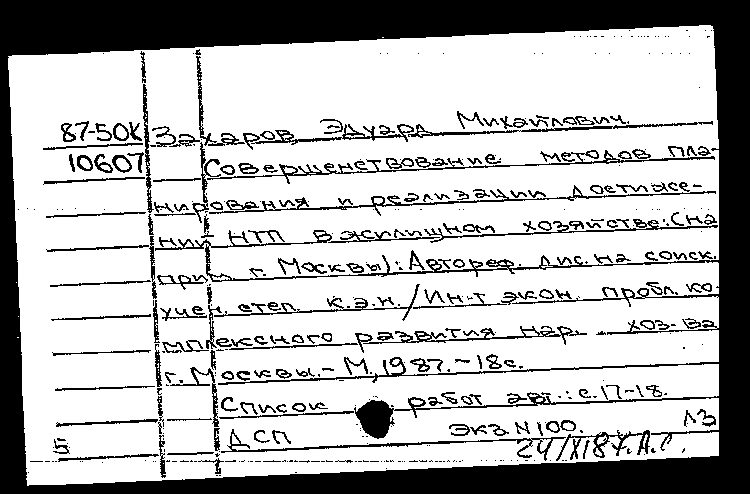 87-50К Захаров Эдуард Михайлович.
10607 Совершенствование методов пла-
нирования и реализации достиже-
ний НТП в жилищном хозяйстве: (на
прим. г. Москвы): Автореф. дис. на соиск.
учен. степ. к.э.н. / Ин-т экон. пробл. ко-
мплексного развития нар. хоз-ва
г. Москвы. - М., 1987. - 18с.
Список работ авт.: с. 17-18.
5 ДСП Экз. N 100. ЛЗ
24/XI87. А.С.